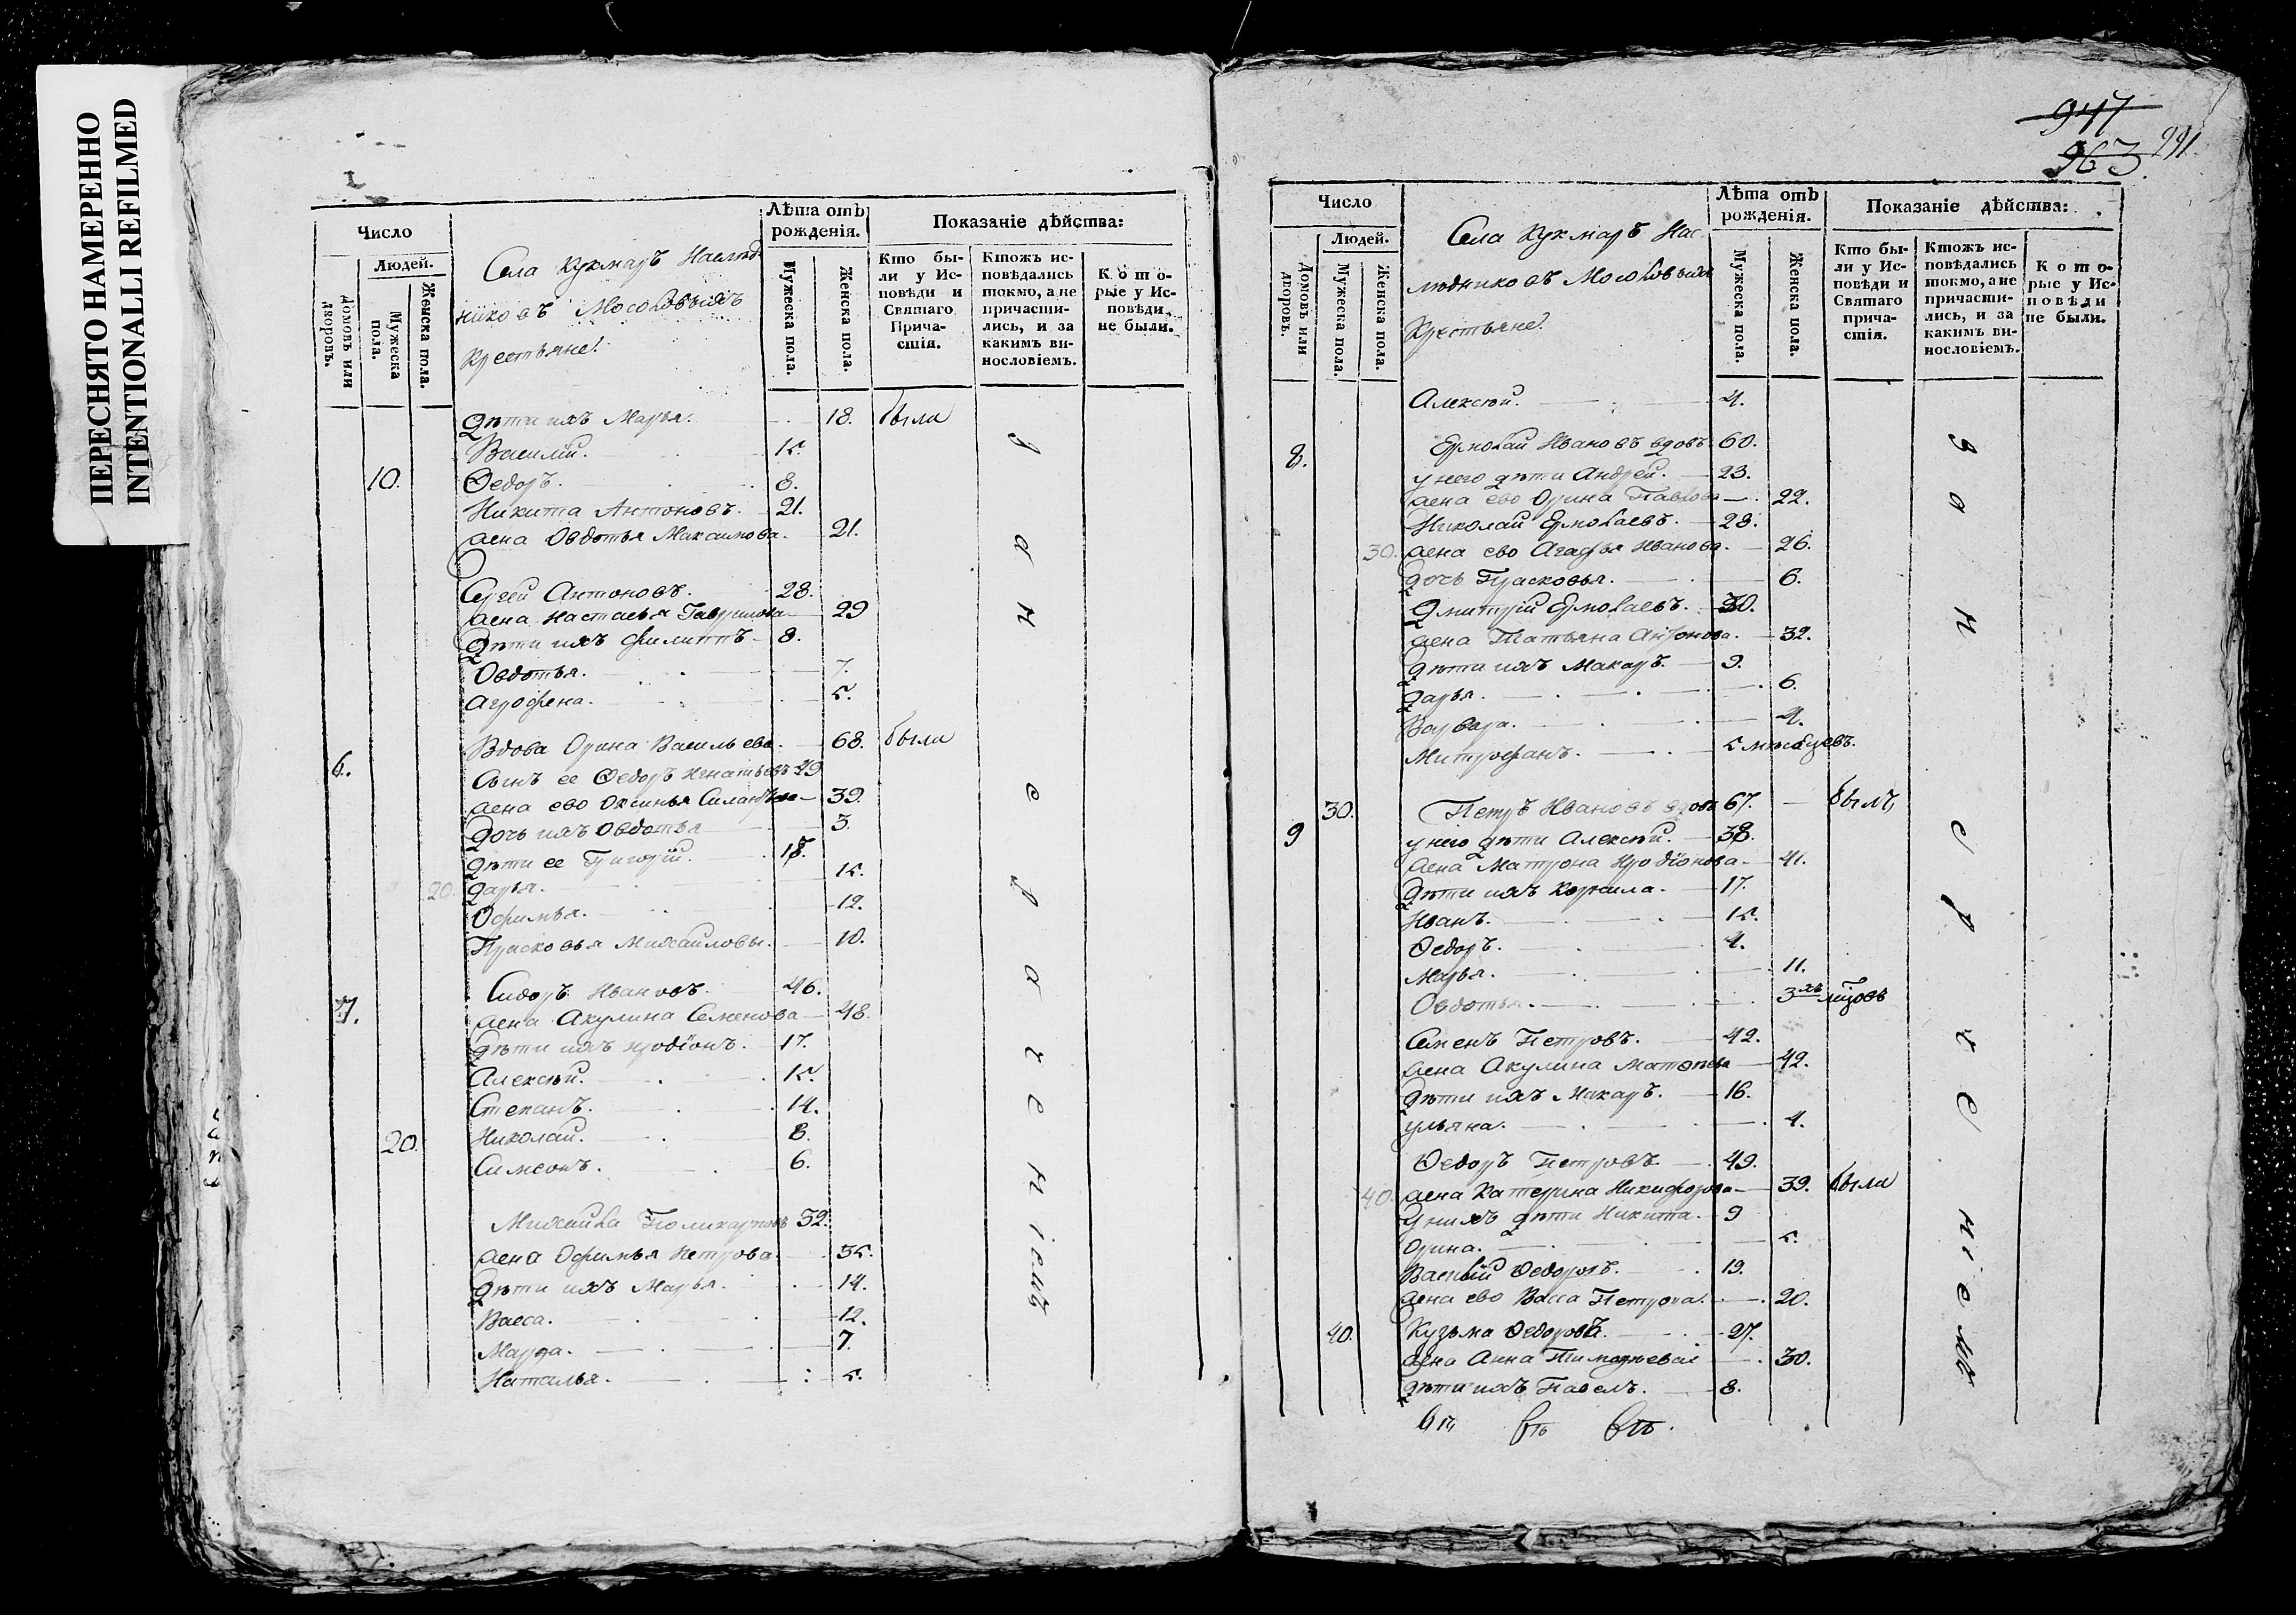 ПЕРЕСНЯТО НАМЕРЕННО
INTENTIONALLI REFILMED
Число
Людей.
Домовъ или дворовъ.
Мужеска пола.
Женска пола.
Села Кукмаръ Наслѣд-
никовъ Мосоловыхъ
Крестьяне.
Лѣта отъ рожденія.
Мужеска пола.
Женска пола.
Показаніе дѣйства:
Кто бы-
ли у Ис-
повѣди и
Святаго
Прича-
стія.
Ктожъ ис-
повѣдались
токмо, а не
причасти-
лись, и за
какимъ ви-
нословіемъ.
Кото-
рые у Ис-
повѣди
не были.
дѣти ихъ Марья. 18. была
Василій. 15.
10. Ѳедоръ. 8.
Никита Антоновъ. 21.
жена Овдотья Максимова. 21.
Сергей Антоновъ. 28.
жена Настасья Гаврилова 29
Дѣти ихъ Филиппъ 8.
Овдотья. 7.
Агрофена. 5.
6. Вдова Орина Васильева. 68. была
Сынъ ее Ѳедоръ Игнатьевъ 49
жена ево Оксинья 39.
Дочь ихъ Овдотья 3.
дѣти ее Григорій.
20. дарья. 15.
Офимья. 12.
Прасковья Михайловы. 10.
7. Сидоръ Ивановъ. 46.
жена Акулина Семенова 48.
дѣти ихъ Иродіонъ. 17.
Алексѣй. 15.
Степанъ. 14.
20. Николай. 8.
Симеонъ. 6.
Михайла Поликарповъ 32.
жена Офимья Петрова. 35.
дѣти ихъ Марья. 14.
Васса. 12.
Марфа. 7.
Наталья. 5.
за не раченіемъ
947
963.
991.
Число
Людей.
Домовъ или дворовъ.
Мужеска пола.
Женска пола.
Села Кукмаръ Нас-
лѣдниковъ Мосоловыхъ
Крестьяне.
Лѣта отъ рожденія.
Мужеска пола.
Женска пола.
Показаніе дѣйства:
Кто бы-
ли у Ис-
повѣди и
Святаго
прича-
стія.
Ктожъ ис-
повѣдались
токмо, а не
причасти-
лись, и за
какимъ ви-
нословіемъ.
Кото-
рые у Ис-
повѣди
не были.
Алексѣй. 4.
8. Ермолай Ивановъ вдовъ 60.
у него дѣти Андрей. 23.
жена ево Орина Павлова 22.
Николай Ермолаевъ. 28.
30. жена ево Агафья Иванова. 26.
дочь Прасковья. 6.
Дмитрій Ермолаевъ. 30.
жена Татьяна Антонова. 32.
дѣти ихъ Макаръ. 9.
дарья. 6.
Варвара. 4.
Митрофанъ. 5 мѣсяцевъ.
9 30. Петръ Ивановъ вдовъ 67. былъ
у него дѣти Алексѣй. 38.
жена Матрона Иродіонова. 41.
дѣти ихъ Корнила. 17.
Иванъ. 15.
Ѳедоръ. 4.
Марья. 11.
Овдотья. 3хъ мцовъ
Семенъ Петровъ. 42.
жена Акулина Матвѣева 42.
дѣти ихъ Макаръ. 16.
ульяна. 4.
Ѳедоръ Петровъ. 49.
40. жена Катерина Никифорова 39. была
у нихъ дѣти Никита. 9
Орина. 5.
Василій Ѳедоровъ. 19.
жена ево Васса Петрова. 20.
40. Кузьма Ѳедоровъ. 27.
жена Анна Тимофѣева 30.
дѣти ихъ Павелъ. 8.
за не раченіемъ